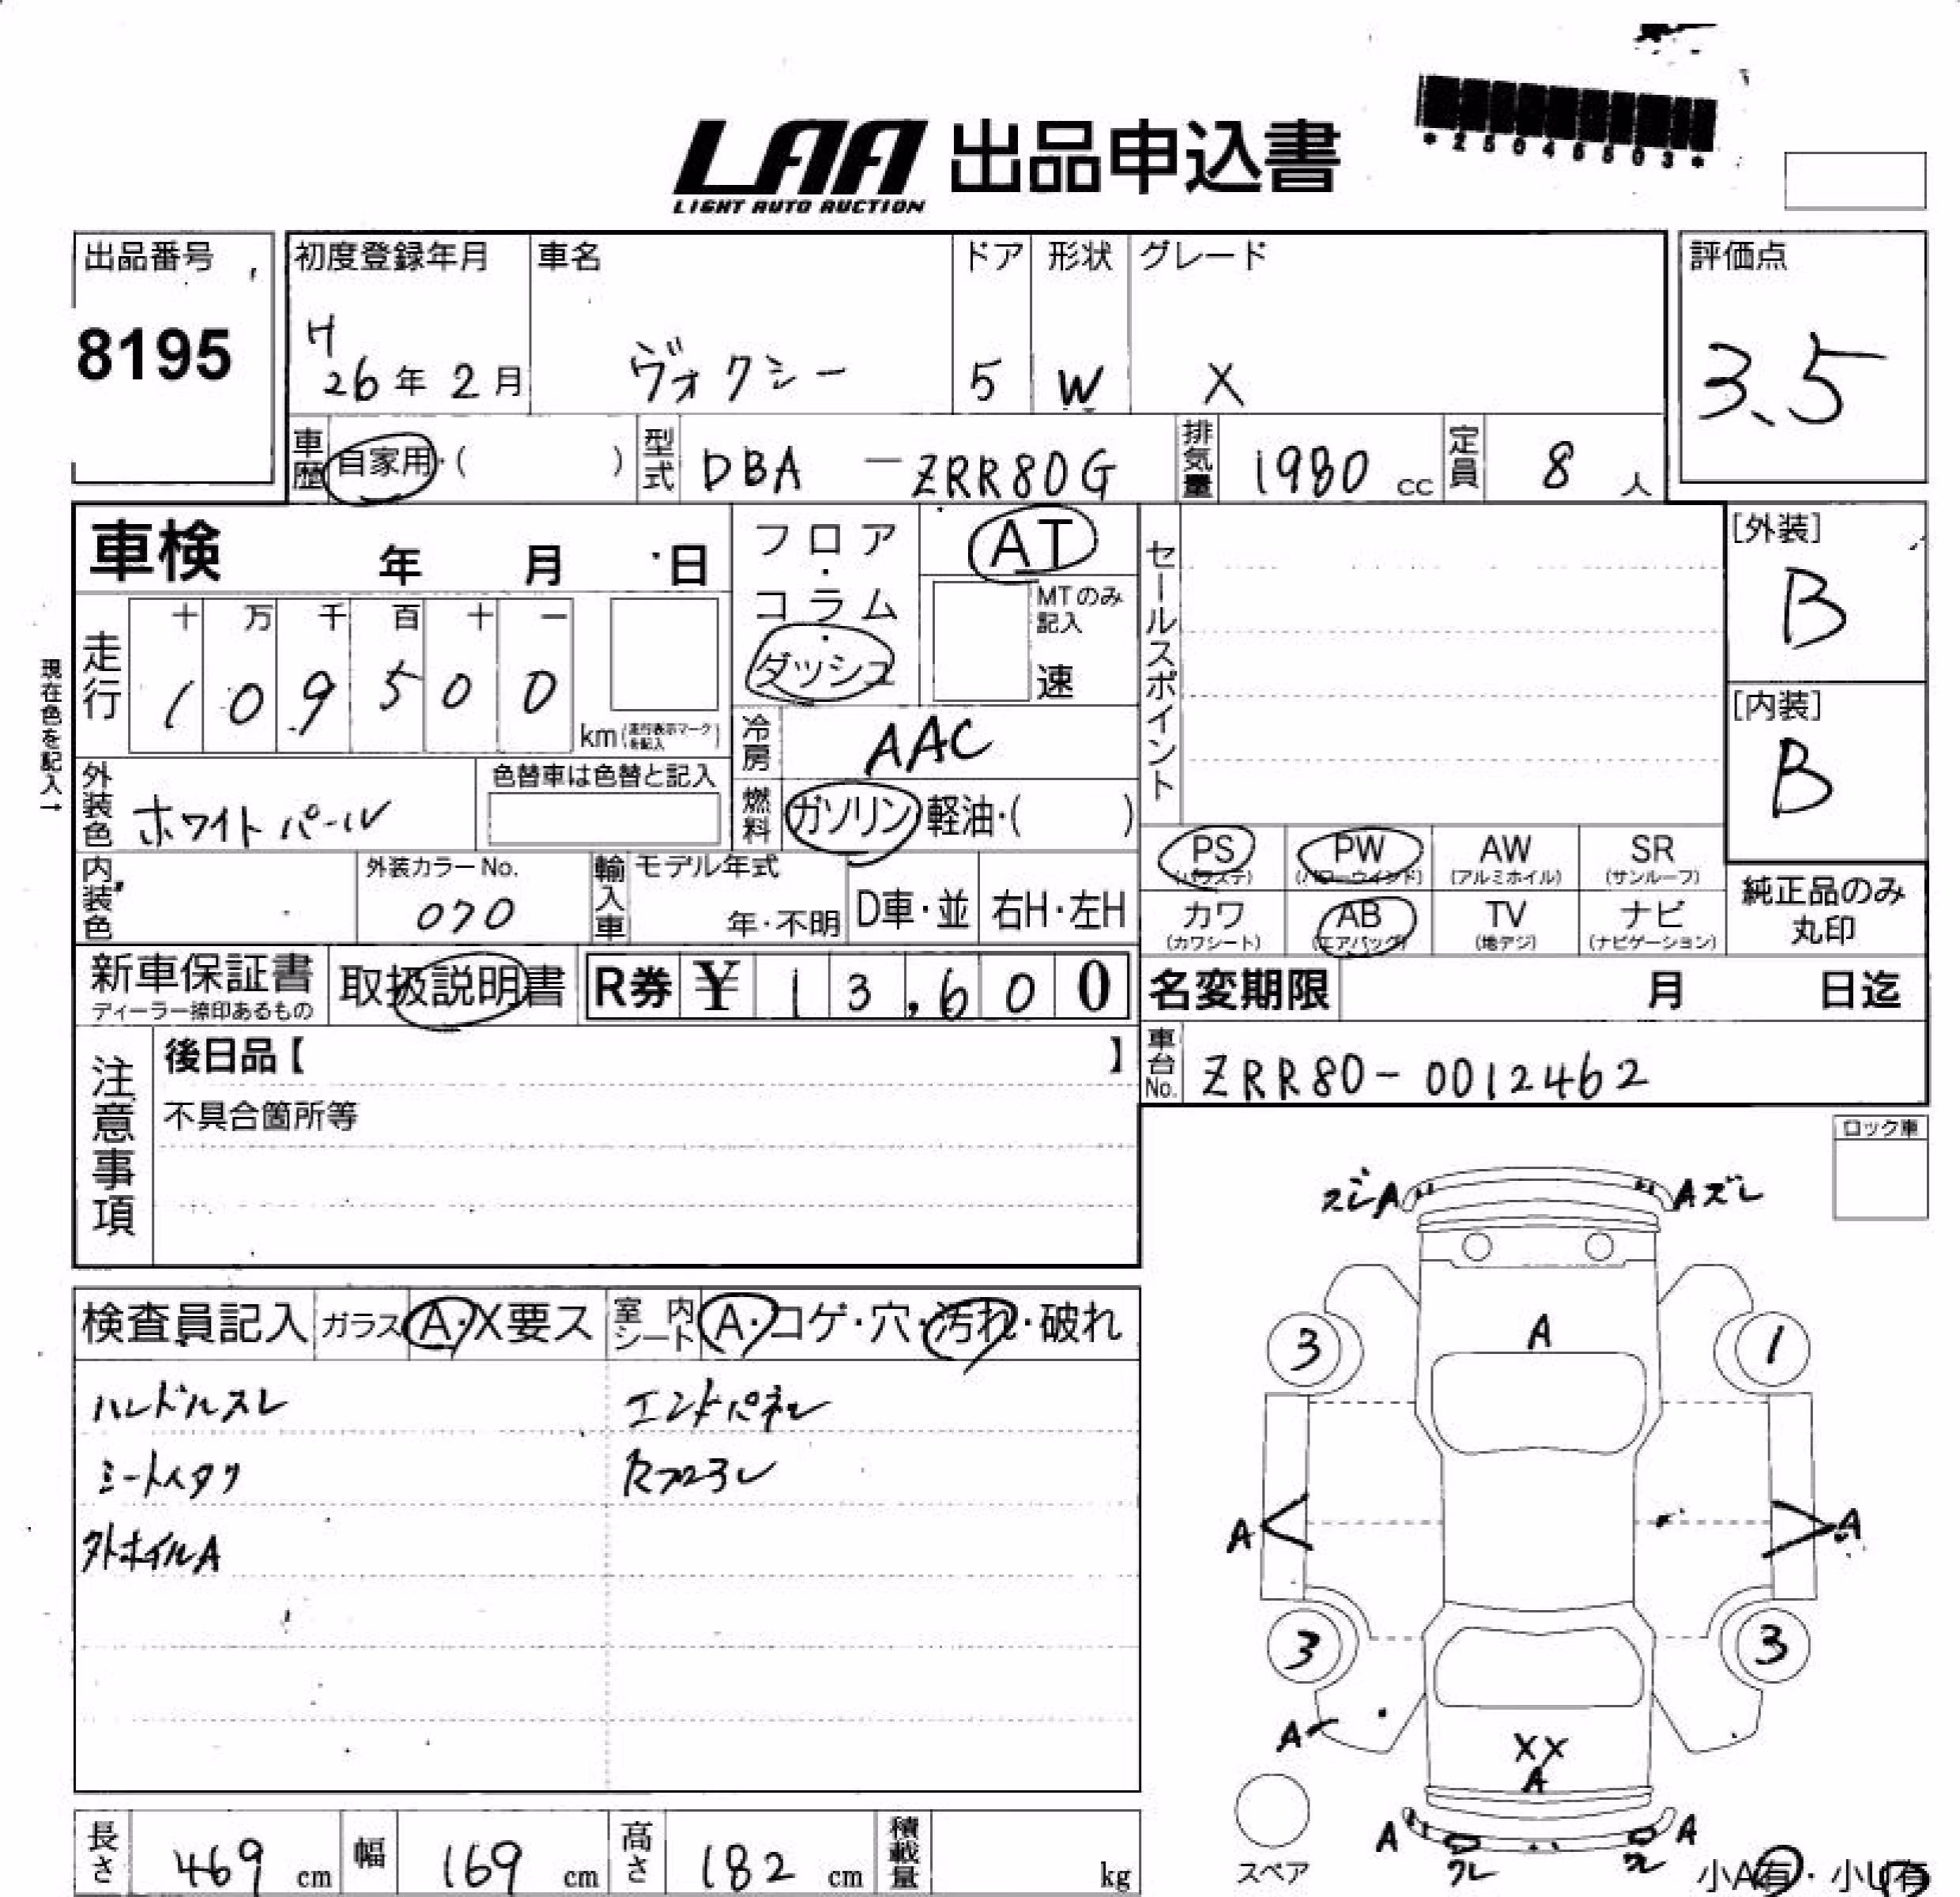 LAA 出品申込書
LIGHT AUTO AUCTION
*25046503*
出品番号
8195
初度登録年月
H
26年2月
車名
ヴォクシー
ドア
5
形状
W
グレード
X
評価点
3.5
車歴 自家用・( )
型式 DBA -ZRR80G
排気量 1980 cc
定員 8 人
車検 年 月 日
走行
十 万 千 百 十 一
1 0 9 5 0 0
km (走行表示マークを記入)
現在色を記入→
フロア・コラム・ダッシュ
AT
MTのみ記入
速
冷房 AAC
燃料 ガソリン・軽油・( )
セールスポイント
[外装]
B
[内装]
B
外装色 ホワイトパール
色替車は色替と記入
内装色
外装カラーNo.
070
輸入車 モデル年式
年・不明
D車・並
右H・左H
PS (パワステ)
PW (パワーウインド)
AW (アルミホイル)
SR (サンルーフ)
カワ (カワシート)
AB (エアバッグ)
TV (地デジ)
ナビ (ナビゲーション)
純正品のみ
丸印
新車保証書
ディーラー捺印あるもの
取扱説明書
R券 ¥ 13,600
名変期限 月 日迄
車台No. ZRR80-0012462
注意事項
後日品【 】
不具合箇所等
ロック車
検査員記入 ガラス A・X要ス
室内シート A・コゲ・穴・汚れ・破れ
ハンドルスレ
シートヘタリ
外ホイルA
エンドパネル
ズレA
Aズレ
A
3
1
A
A
3
3
A
XX
A
A
A
スペア
小A有・小U有
長さ 469 cm
幅 169 cm
高さ 182 cm
積載量 kg